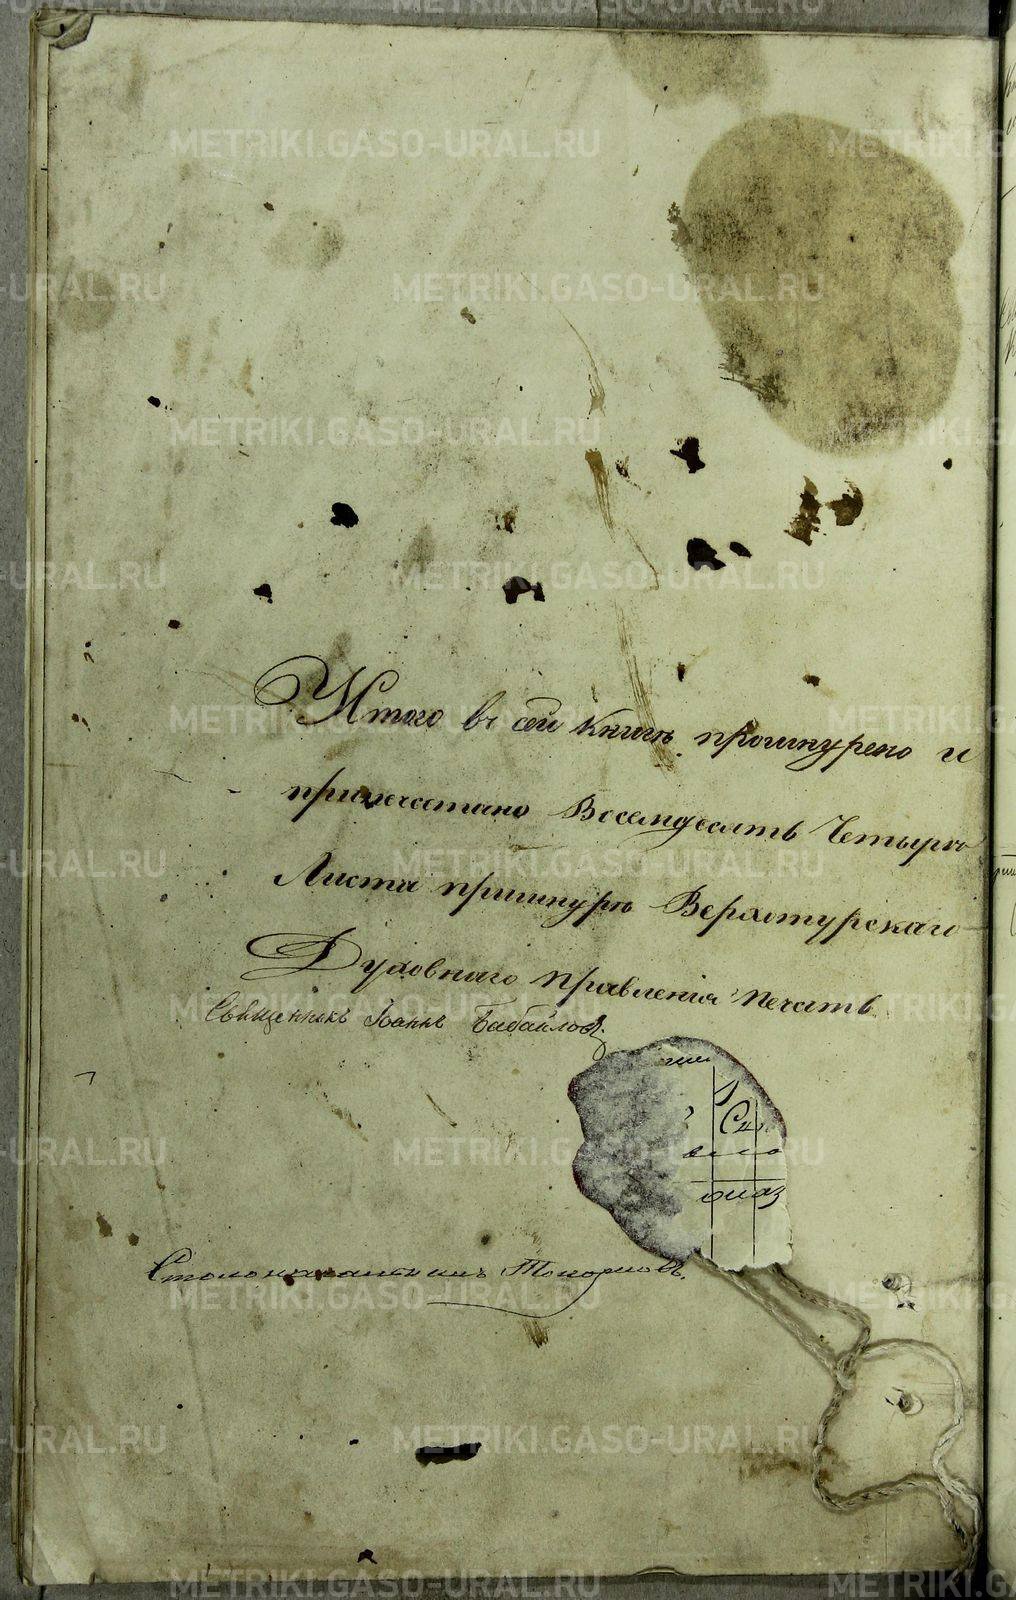 Итого въ сей книгѣ прошнурено и
припечатано Восемдесятъ Четыре
Листа пришнурѣ Верхотурскаго
Духовнаго правленія печать
Священникъ Іоаннъ Бабайлов.
Столоначальникъ Топорковъ.